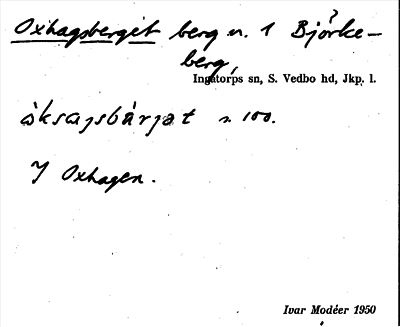 Oxhagsberget berg n. 1 Björke-
berg,
Ingatorps sn, S. Vedbo hd, Jkp. l.
òksagsbàrjat s. 100.
I Oxhagen.
Ivar Modéer 1950